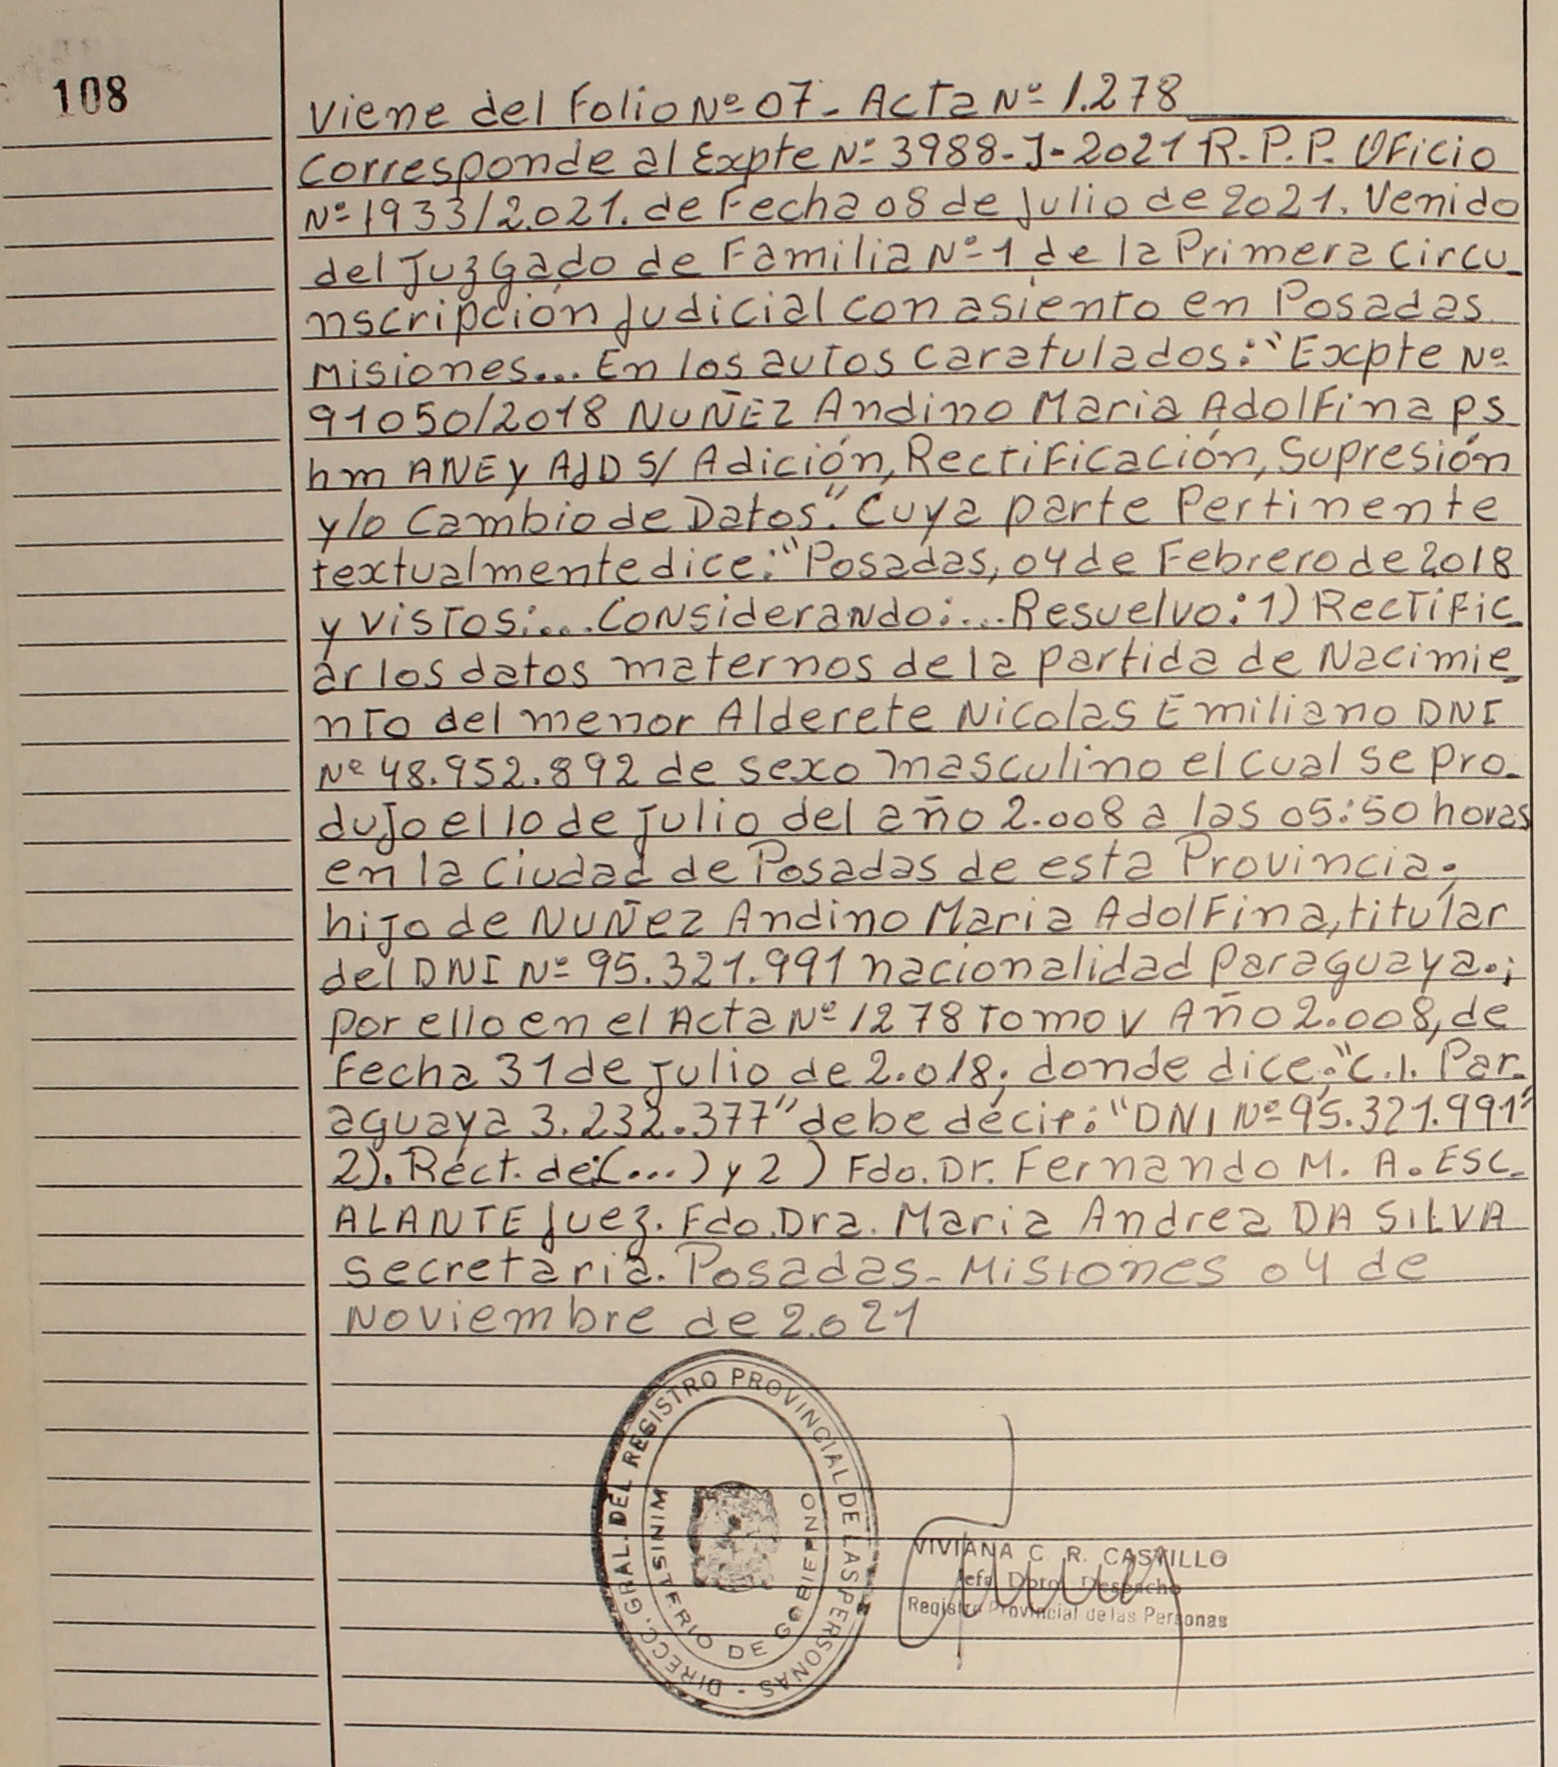 108
Viene del Folio Nº 07- Acta Nº 1.278
Corresponde al Expte Nº 3988-J-2021 R.P.P. Oficio
Nº 1933/2.021. de Fecha 08 de Julio de 2021. Venido
del Juzgado de Familia Nº 1 de la Primera Circu-
nscripción Judicial con asiento en Posadas
Misiones... En los autos caratulados: "Excpte Nº
91050/2018 NUÑEZ Andino Maria Adolfina ps
hm ANE y AJD S/ Adición, Rectificación, Supresión
y/o Cambio de Datos." Cuya parte Pertinente
textualmente dice: "Posadas, 04 de Febrero de 2.018
y VISTOS:... Considerando:... Resuelvo: 1) Rectific-
ar los datos maternos de la partida de Nacimie-
nto del menor Alderete Nicolas Emiliano DNI
Nº 48.952.892 de sexo masculino el cual se pro-
dujo el 10 de Julio del año 2.008 a las 05:50 horas
en la Ciudad de Posadas de esta Provincia;
hijo de NUÑEZ Andino Maria Adolfina, titular
del DNI Nº 95.321.991 nacionalidad Paraguaya.;
por ello en el Acta Nº 1278 Tomo V Año 2.008, de
Fecha 31 de Julio de 2.018; donde dice: "C.I. Par-
aguaya 3.232.377" debe decir: "DNI Nº 95.321.991"
2). Rect. de:(...) y 2) Fdo. Dr. Fernando M. A. ESC-
ALANTE Juez. Fdo. Dra. Maria Andrea DA SILVA
Secretaria. Posadas- Misiones 04 de
Noviembre de 2.021
DIRECC. GRAL. DEL REGISTRO PROVINCIAL DE LAS PERSONAS -
MINISTERIO DE GOBIERNO
VIVIANA C. R. CASTILLO
Jefa Dpto. Despacho
Registro Provincial de las Personas